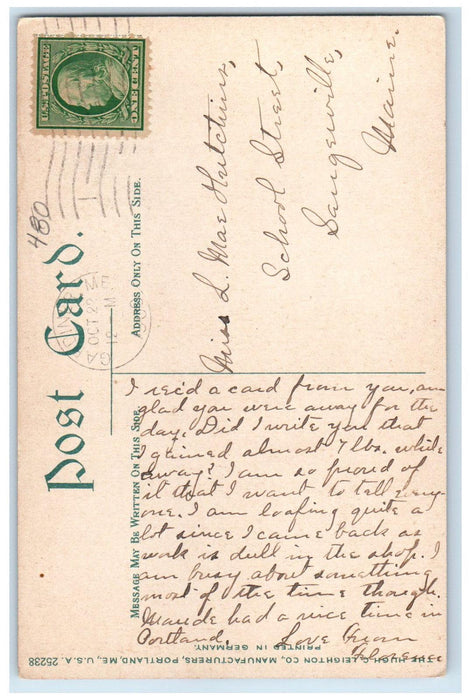 U.S. POSTAGE
ONE CENT
480
GARDINER ME.
OCT 22
12 M
Post Card.
ADDRESS ONLY ON THIS SIDE.
MESSAGE MAY BE WRITTEN ON THIS SIDE.
Miss L. Mae Hutchins,
School Street,
Sangerville,
Maine.
I rec'd a card from you, am
glad you were away for the
day. Did I write you that
I gained almost 7 lbs. while
away? I am so proud of
it that I want to tell every-
one. I am loafing quite a
lot since I came back as
work is dull in the shop. I
am busy about something
most of the time though.
Maude had a nice time in
Portland. Love from
Florence
THE HUGH C. LEIGHTON CO., MANUFACTURERS, PORTLAND, ME., U.S.A. 25238
PRINTED IN GERMANY.